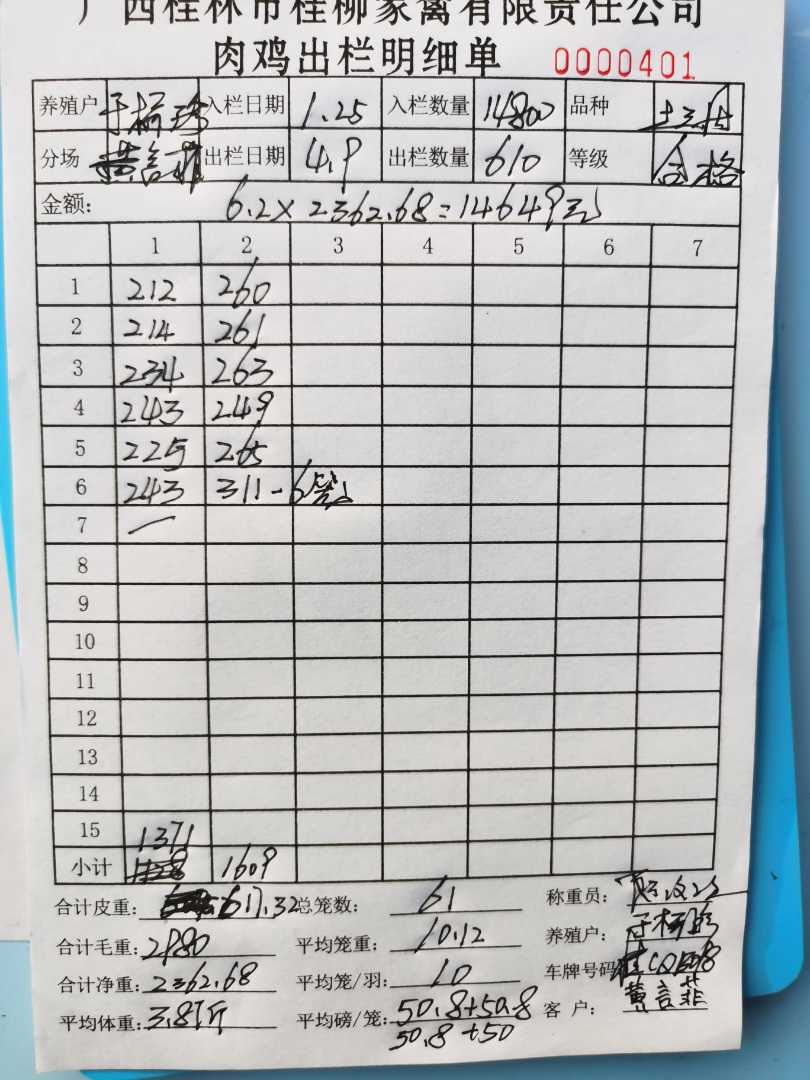 广西桂林市桂柳家禽有限责任公司
肉鸡出栏明细单 0000401
养殖户 入栏日期 1.25 入栏数量 14800 品种
分场 黄言菲 出栏日期 4.9 出栏数量 610 等级 合格
金额: 6.2×2362.68=14649元
1 2 3 4 5 6 7
1 212 260
2 214 261
3 234 263
4 243 249
5 225 265
6 243 311-6笼
7 —
8
9
10
11
12
13
14
15 1371
小计 1609
合计皮重: 617.32 总笼数: 61 称重员:
合计毛重: 2980 平均笼重: 10.12 养殖户:
合计净重: 2362.68 平均笼/羽: 10 车牌号码:
平均体重: 3.87斤 平均磅/笼: 50.8+50.8 客户: 黄言菲
50.8+50